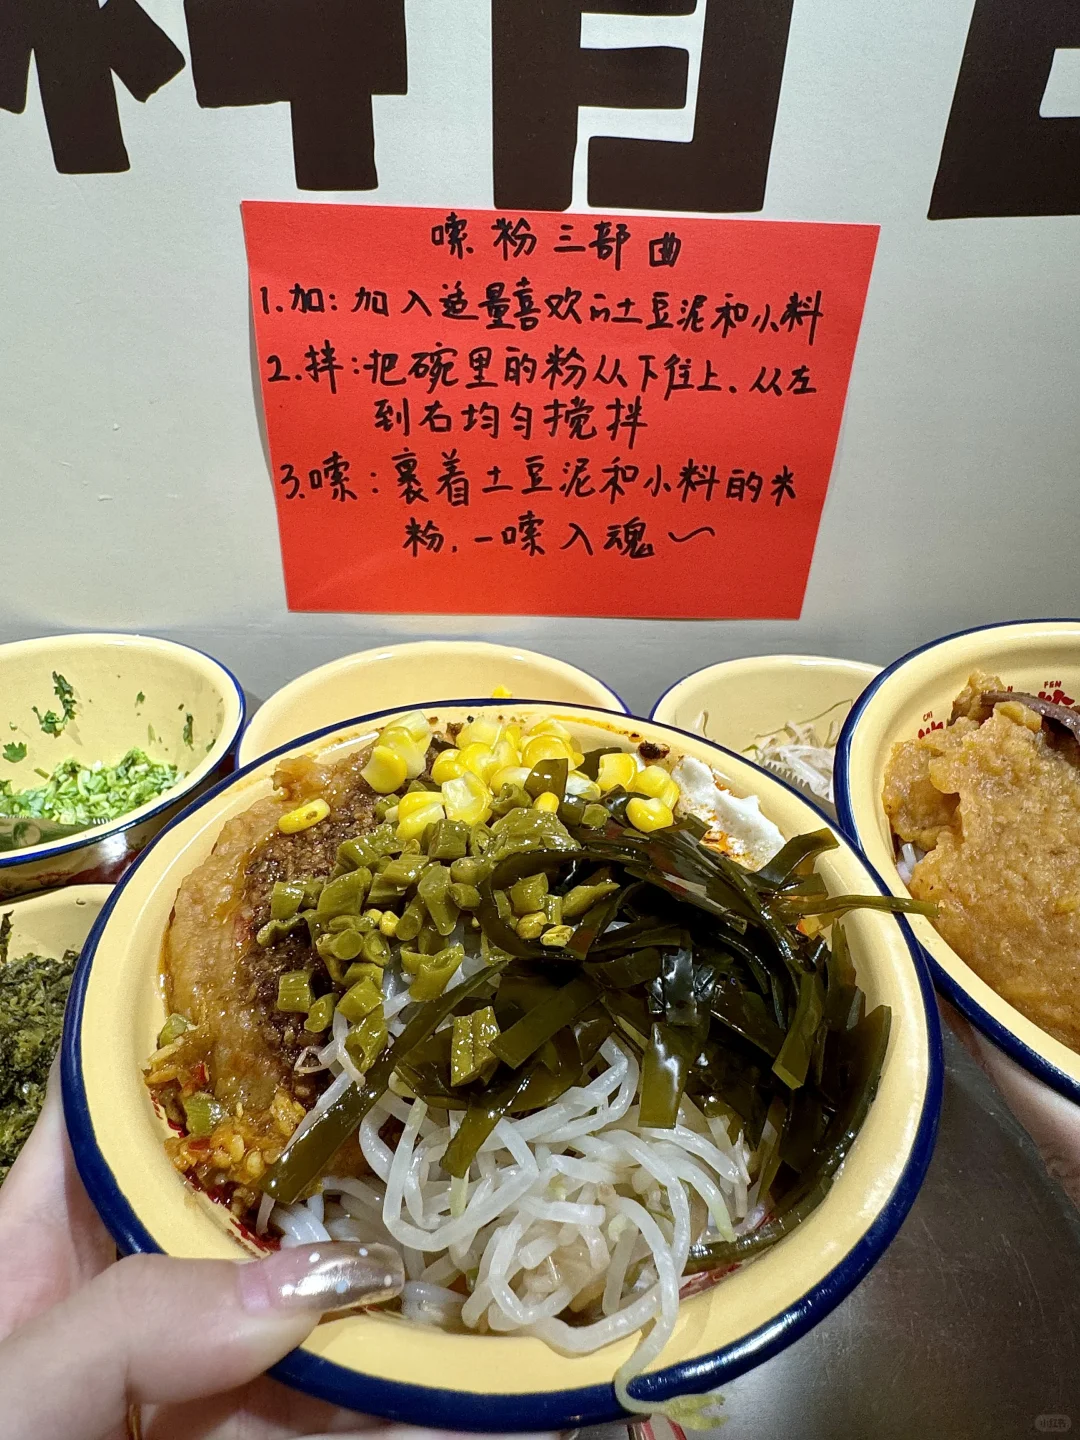 料自
嗦粉三部曲
1.加:加入适量喜欢的土豆泥和小料
2.拌:把碗里的粉从下往上、从左
到右均匀搅拌
3.嗦:裹着土豆泥和小料的米
粉,一嗦入魂~
FEN
CHI
小红书